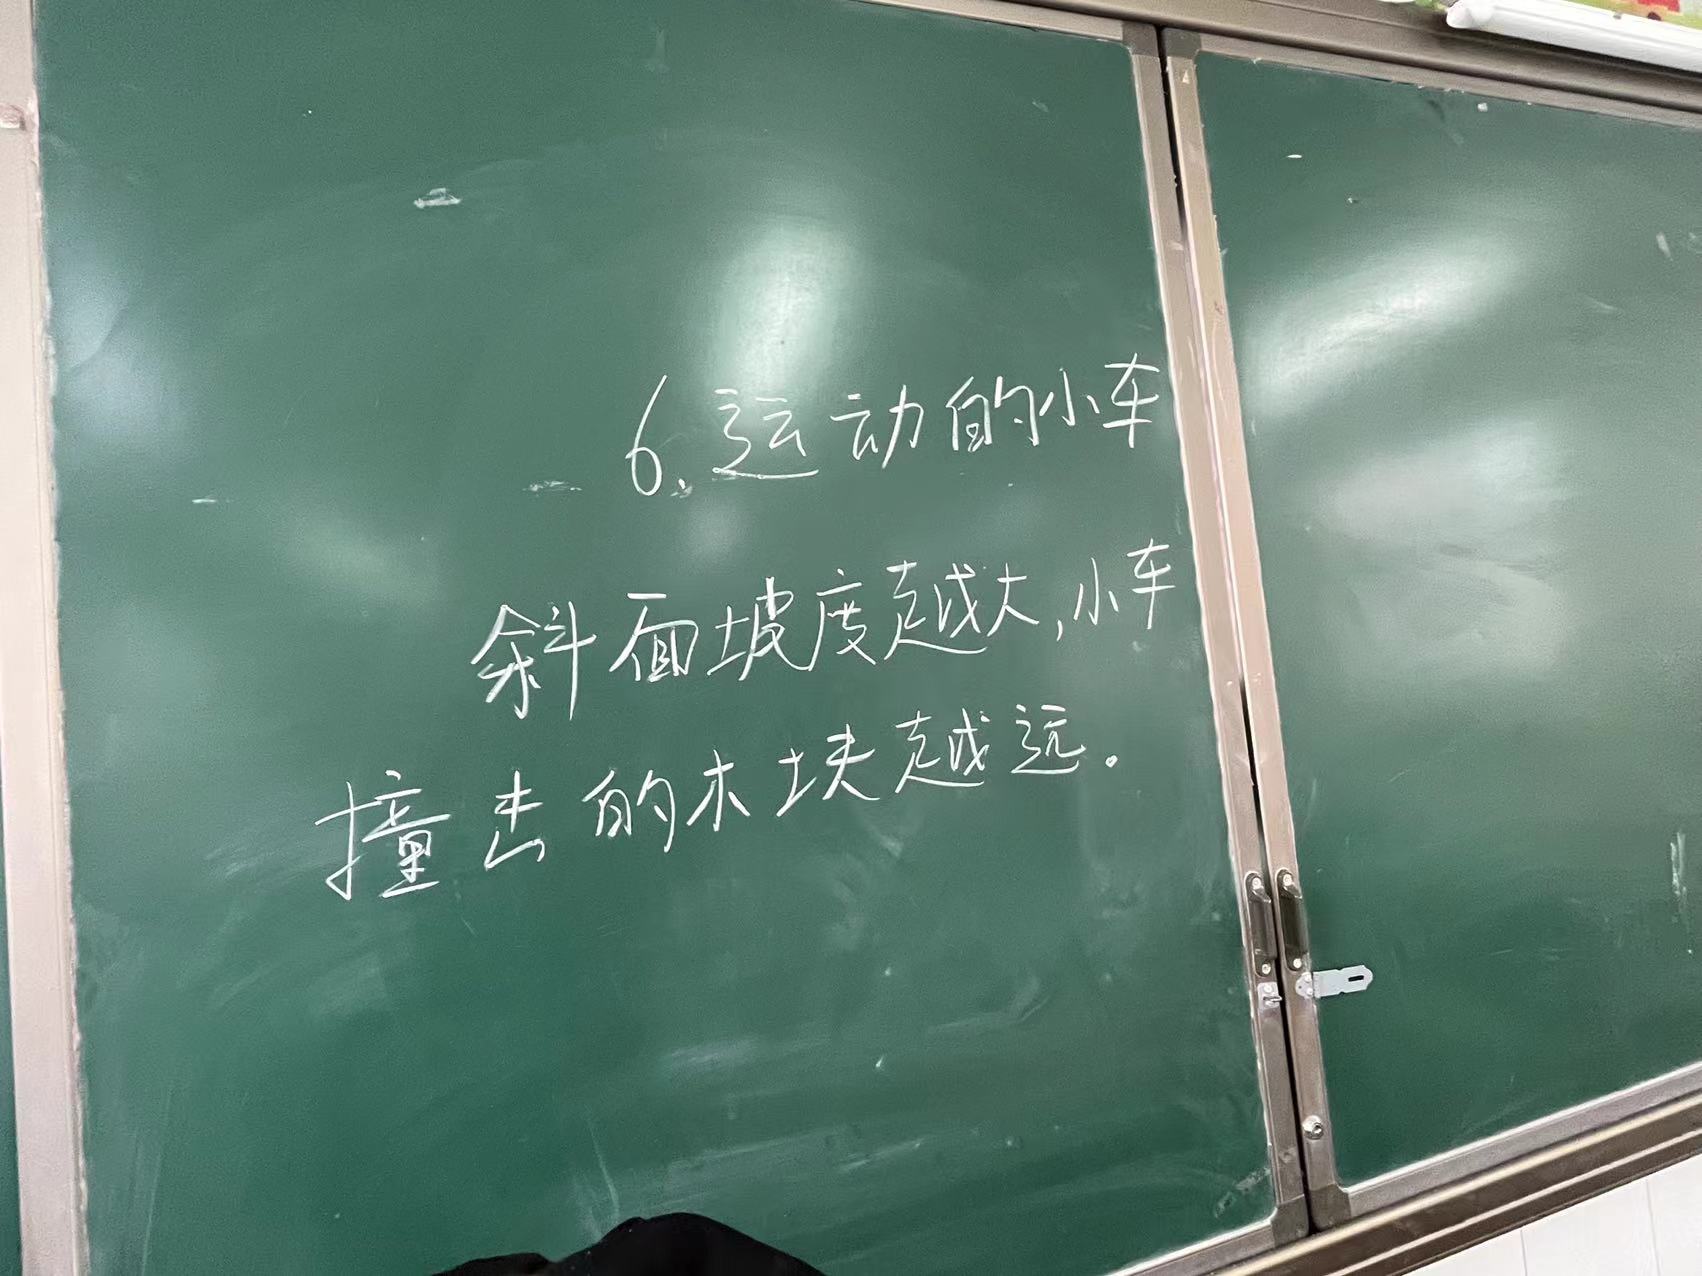 6.运动的小车
斜面坡度越大,小车
撞击的木块越远.